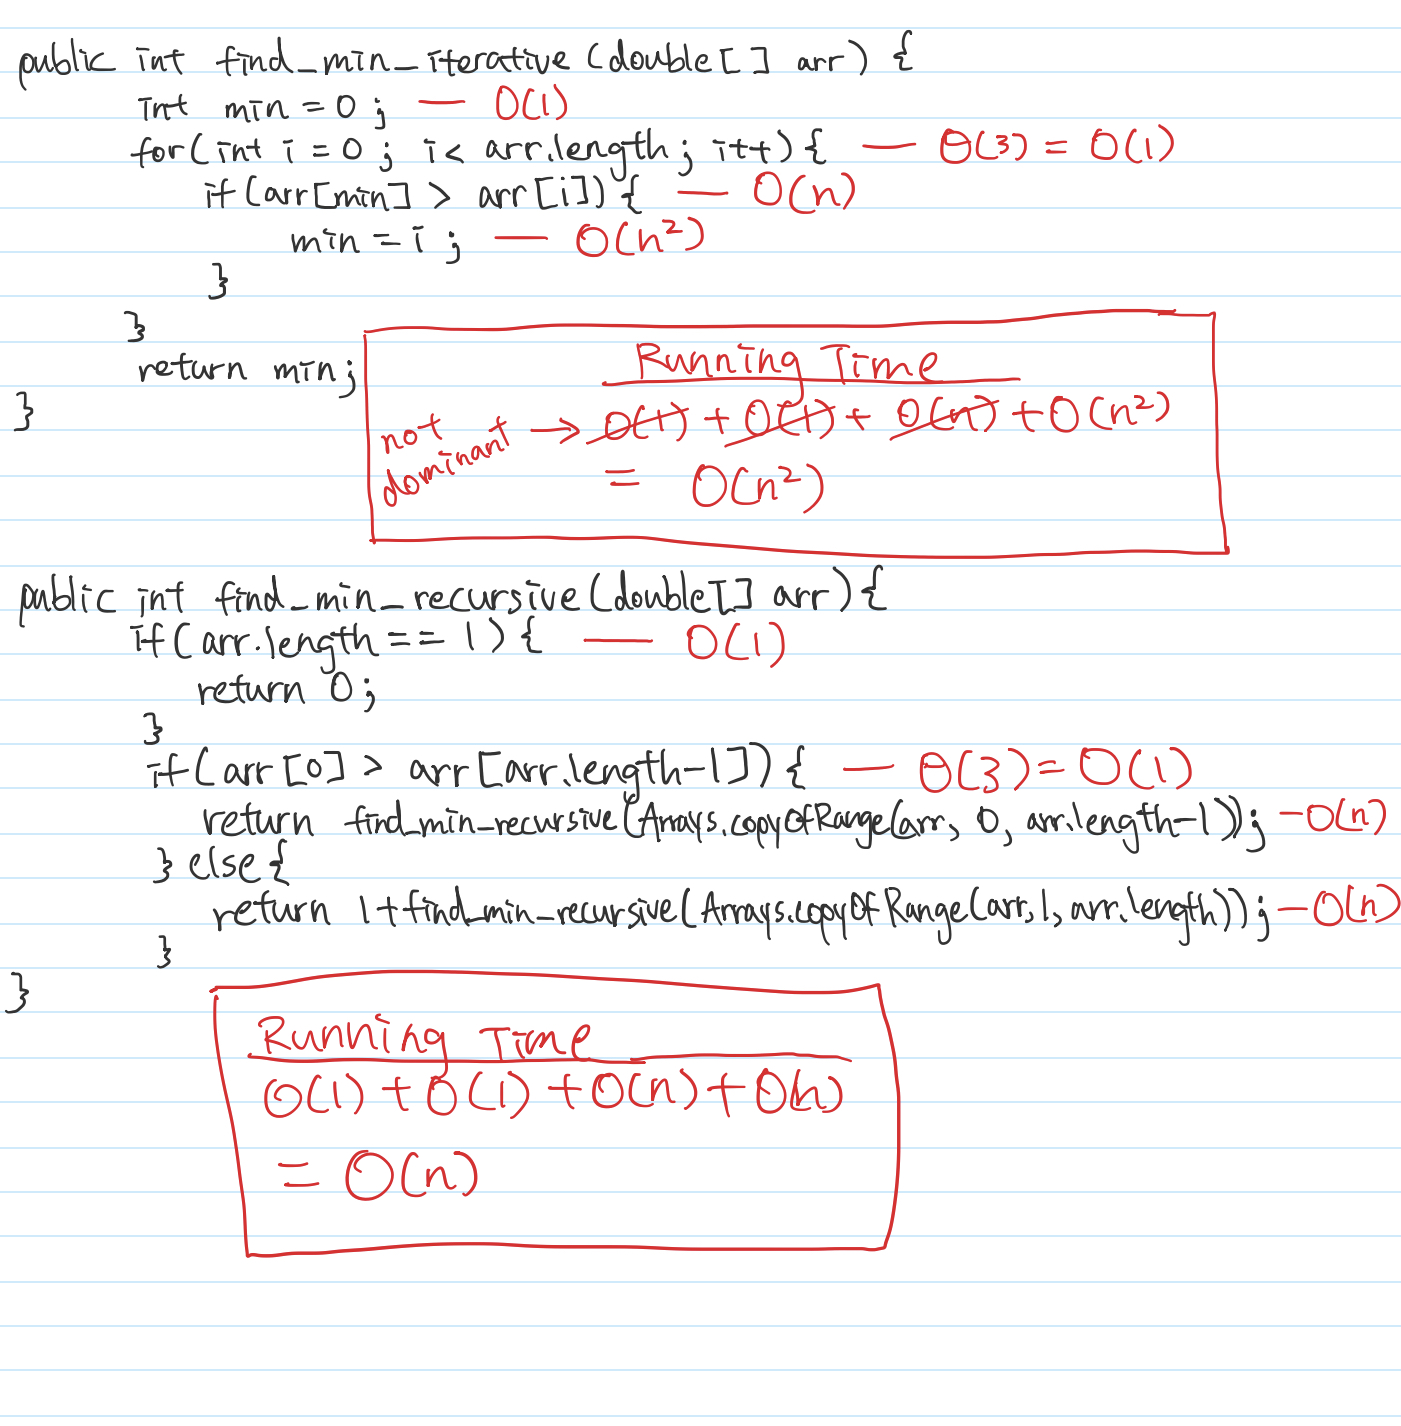 public int find_min_iterative (double[] arr) {
int min = 0 ; — O(1)
for(int i = 0 ; i < arr.length ; i++) { — Θ(3) = O(1)
if (arr[min] > arr[i]) { — O(n)
min = i ; — O(n²)
}
}
return min;
}
Running Time
not dominant → O(1) + O(1) + O(n) + O(n²)
= O(n²)
public int find_min_recursive (double[] arr) {
if (arr.length == 1) { — O(1)
return 0;
}
if (arr[0] > arr[arr.length-1]) { — Θ(3) = O(1)
return find_min_recursive(Arrays.copyOfRange(arr, 0, arr.length-1)); — O(n)
} else {
return 1+find_min_recursive(Arrays.copyOfRange(arr,1,arr.length)); — O(n)
}
}
Running Time
O(1) + O(1) + O(n) + O(n)
= O(n)